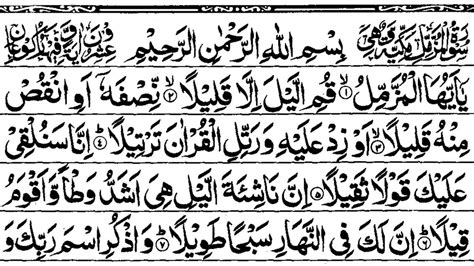 سُورَةُ الْمُزَّمِّلِ مَكِّيَّةٌ وَّهِيَ بِسْمِ اللهِ الرَّحْمٰنِ الرَّحِيْمِ عِشْرُوْنَ اٰيَةً وَّفِيْهَا رُكُوْعَانِ
يٰۤاَيُّهَا الْمُزَّمِّلُ ۙ﴿۱﴾ قُمِ الَّيْلَ اِلَّا قَلِيْلًا ۙ﴿۲﴾ نِّصْفَهٗۤ اَوِ انْقُصْ
مِنْهُ قَلِيْلًا ۙ﴿۳﴾ اَوْ زِدْ عَلَيْهِ وَرَتِّلِ الْقُرْاٰنَ تَرْتِيْلًا ؕ﴿۴﴾ اِنَّا سَنُلْقِيْ
عَلَيْكَ قَوْلًا ثَقِيْلًا ﴿۵﴾ اِنَّ نَاشِئَةَ الَّيْلِ هِيَ اَشَدُّ وَطْاً وَّاَقْوَمُ
قِيْلًا ؕ﴿۶﴾ اِنَّ لَكَ فِي النَّهَارِ سَبْحًا طَوِيْلًا ؕ﴿۷﴾ وَاذْكُرِ اسْمَ رَبِّكَ وَ